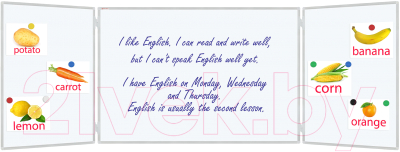 potato
carrot
lemon
I like English. I can read and write well,
but I can't speak English well yet.
I have English on Monday, Wednesday
and Thursday.
English is usually the second lesson.
banana
corn
orange
21vek.by